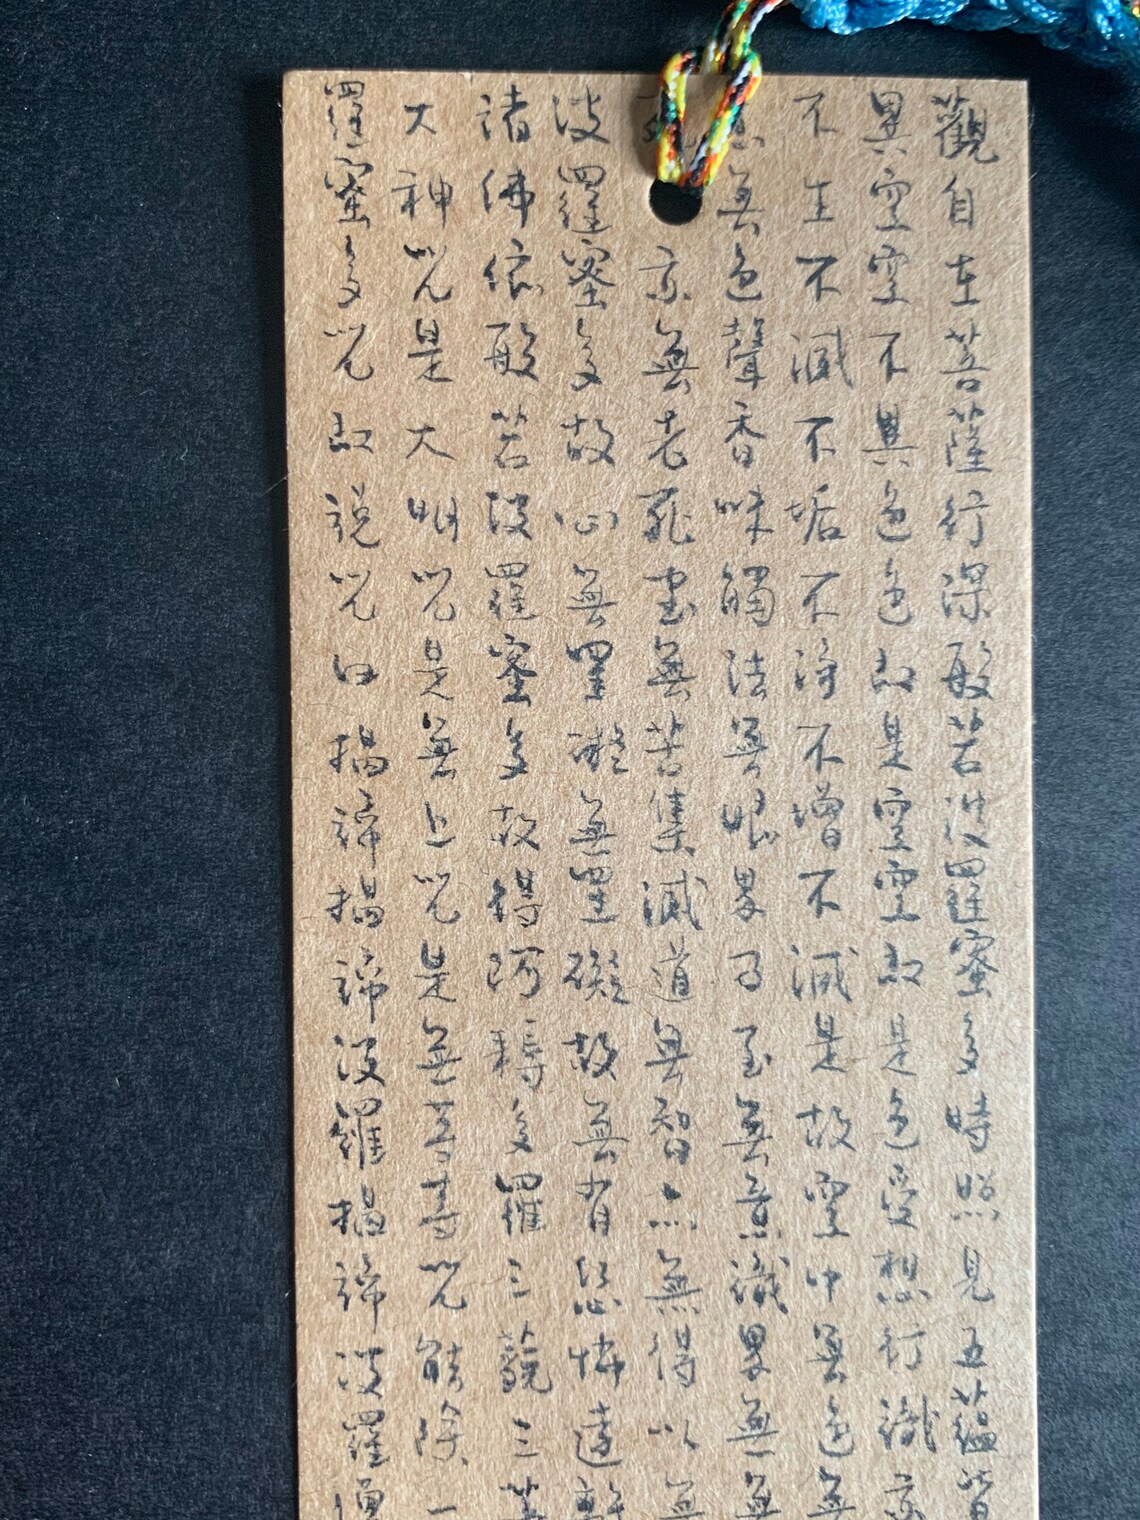 觀自在菩薩行深般若波羅蜜多時照見五蘊皆
異空空不異色色即是空空即是色受想行識亦
不生不滅不垢不淨不增不減是故空中無色無
無色聲香味觸法無眼界乃至無意識界無無
亦無老死盡無苦集滅道無智亦無得以無
波羅蜜多故心無罣礙無罣礙故無有恐怖遠離
諸佛依般若波羅蜜多故得阿耨多羅三藐三菩
大神咒是大明咒是無上咒是無等等咒能除一
羅蜜多咒即說咒曰揭諦揭諦波羅揭諦波羅僧